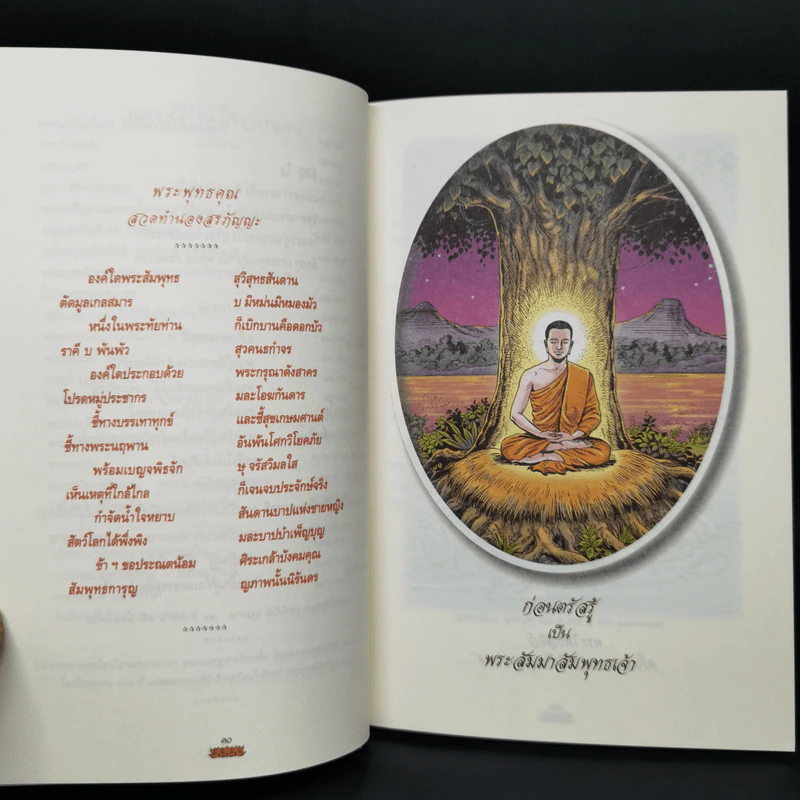 พระพุทธคุณ
สวดทำนองสรภัญญะ
*******
องค์ใดพระสัมพุทธ สุวิสุทธสันดาน
ตัดมูลเกลสมาร บ มิหม่นมิหมองมัว
หนึ่งในพระทัยท่าน ก็เบิกบานคือดอกบัว
ราคี บ พันพัว สุวคนธกำจร
องค์ใดประกอบด้วย พระกรุณาดังสาคร
โปรดหมู่ประชากร มละโอฆกันดาร
ชี้ทางบรรเทาทุกข์ และชี้สุขเกษมศานต์
ชี้ทางพระนฤพาน อันพ้นโศกวิโยคภัย
พร้อมเบญจพิธจัก ษุ จรัสวิมลใส
เห็นเหตุที่ใกล้ไกล ก็เจนจบประจักษ์จริง
กำจัดน้ำใจหยาบ สันดานบาปแห่งชายหญิง
สัตว์โลกได้พึ่งพิง มละบาปบำเพ็ญบุญ
ข้า ฯ ขอประณตน้อม ศิระเกล้าบังคมคุณ
สัมพุทธการุญ ญภาพนั้นนิรันดร
*******
๑๐
ก่อนตรัสรู้
เป็น
พระสัมมาสัมพุทธเจ้า